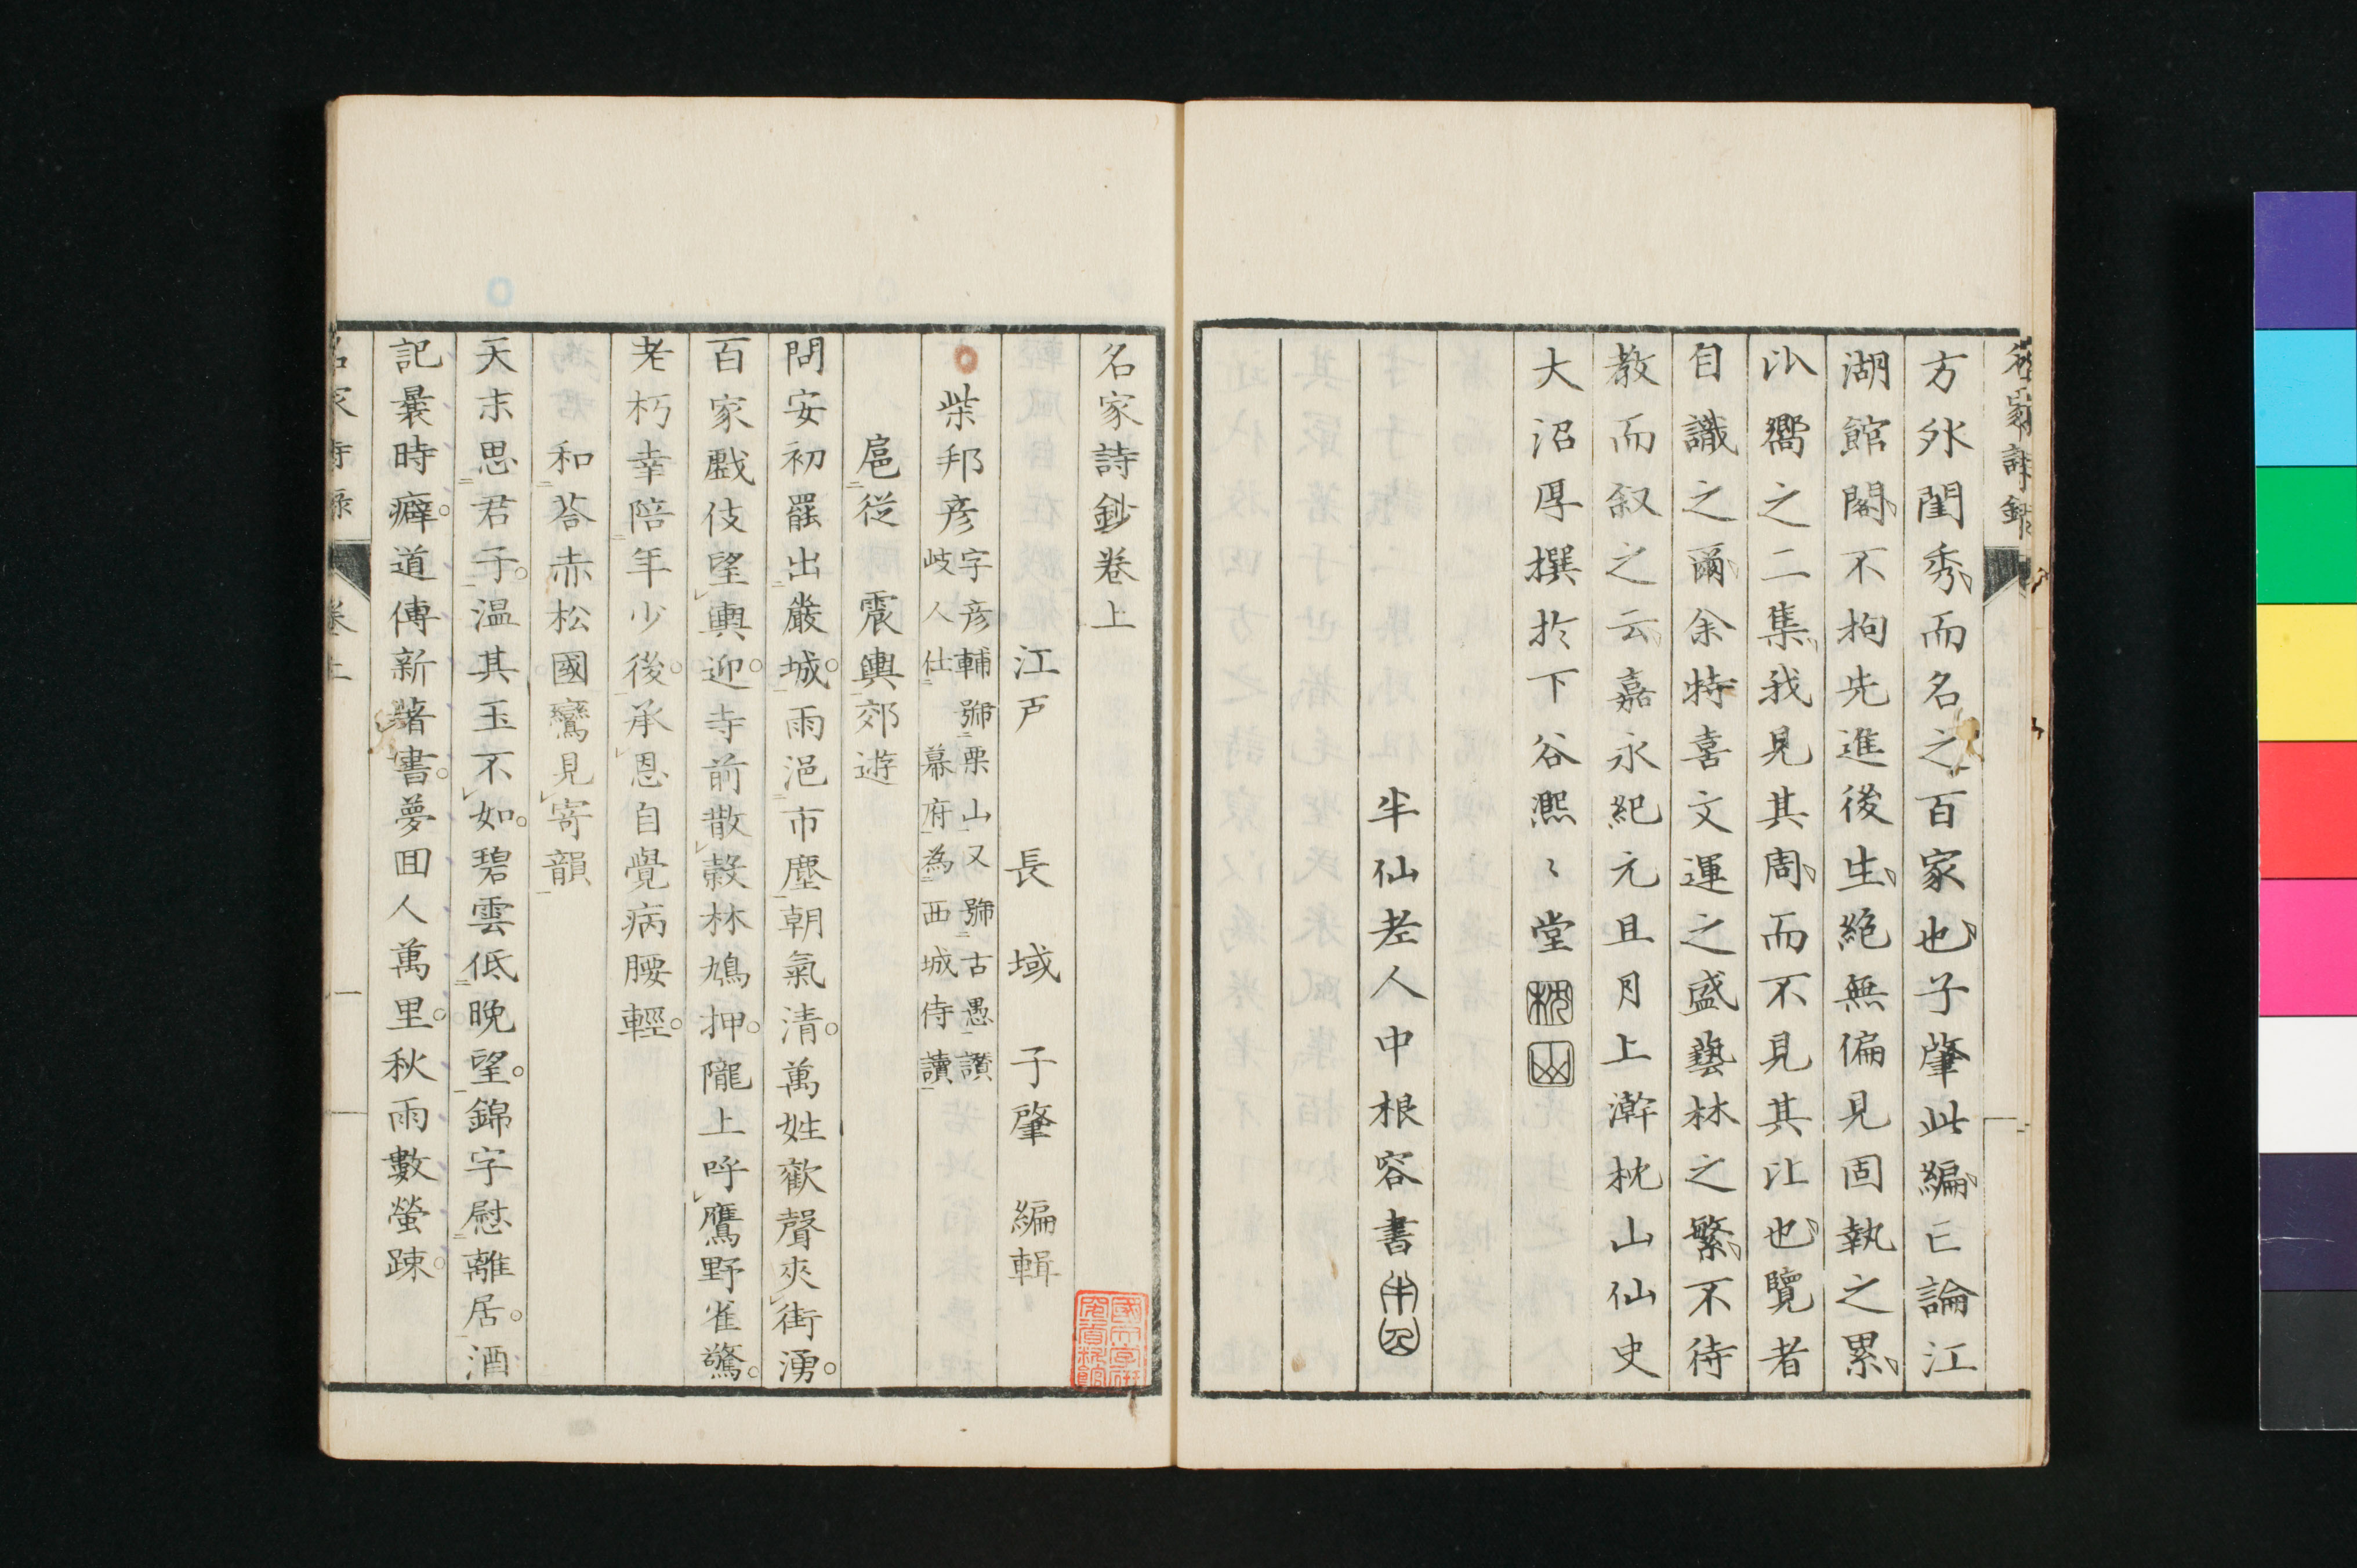 方外閨秀而名之百家也子肇此編亡論江
湖館閣不拘先進後生絶無偏見固執之累
以嚮之二集我見其周而不見其比也覽者
自識之爾余特喜文運之盛藝林之繁不待
教而叙之云嘉永紀元且月上澣枕山仙史
大沼厚撰於下谷熙々堂
半仙老人中根容書
名家詩鈔卷上
江戸 長域 子肇 編輯
柴邦彦
字彦輔號栗山又號古愚讃
岐人仕幕府為西城侍讀
扈從 震輿郊遊
問安初罷出嚴城雨浥市塵朝氣清萬姓歡聲夾街湧
百家戲伎望輿迎寺前散穀林鳩押隴上呼鷹野雀驚
老朽幸陪年少後承恩自覺病腰輕
和荅赤松國鸞見寄韻
天末思君子温其玉不如碧雲低晩望錦字慰離居酒
記曩時癖道傳新著書夢囬人萬里秋雨數螢踈